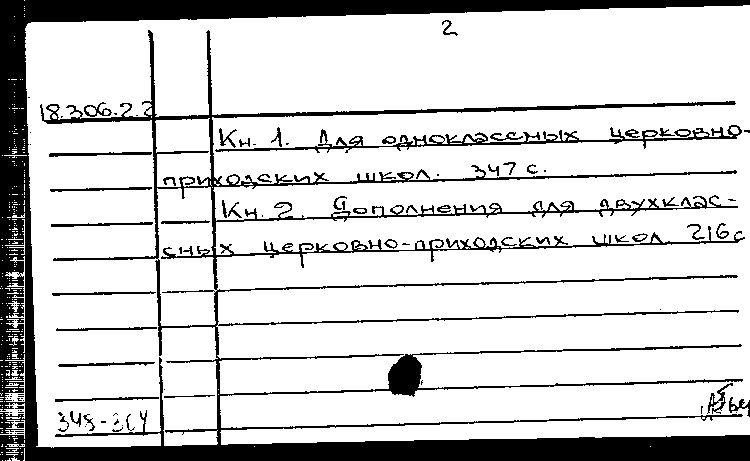 2
18.306.2.2
Кн. 1. Для одноклассных церковно-
приходских школ. 347 с.
Кн. 2. Дополнения для двухклас-
сных церковно-приходских школ. 216 с